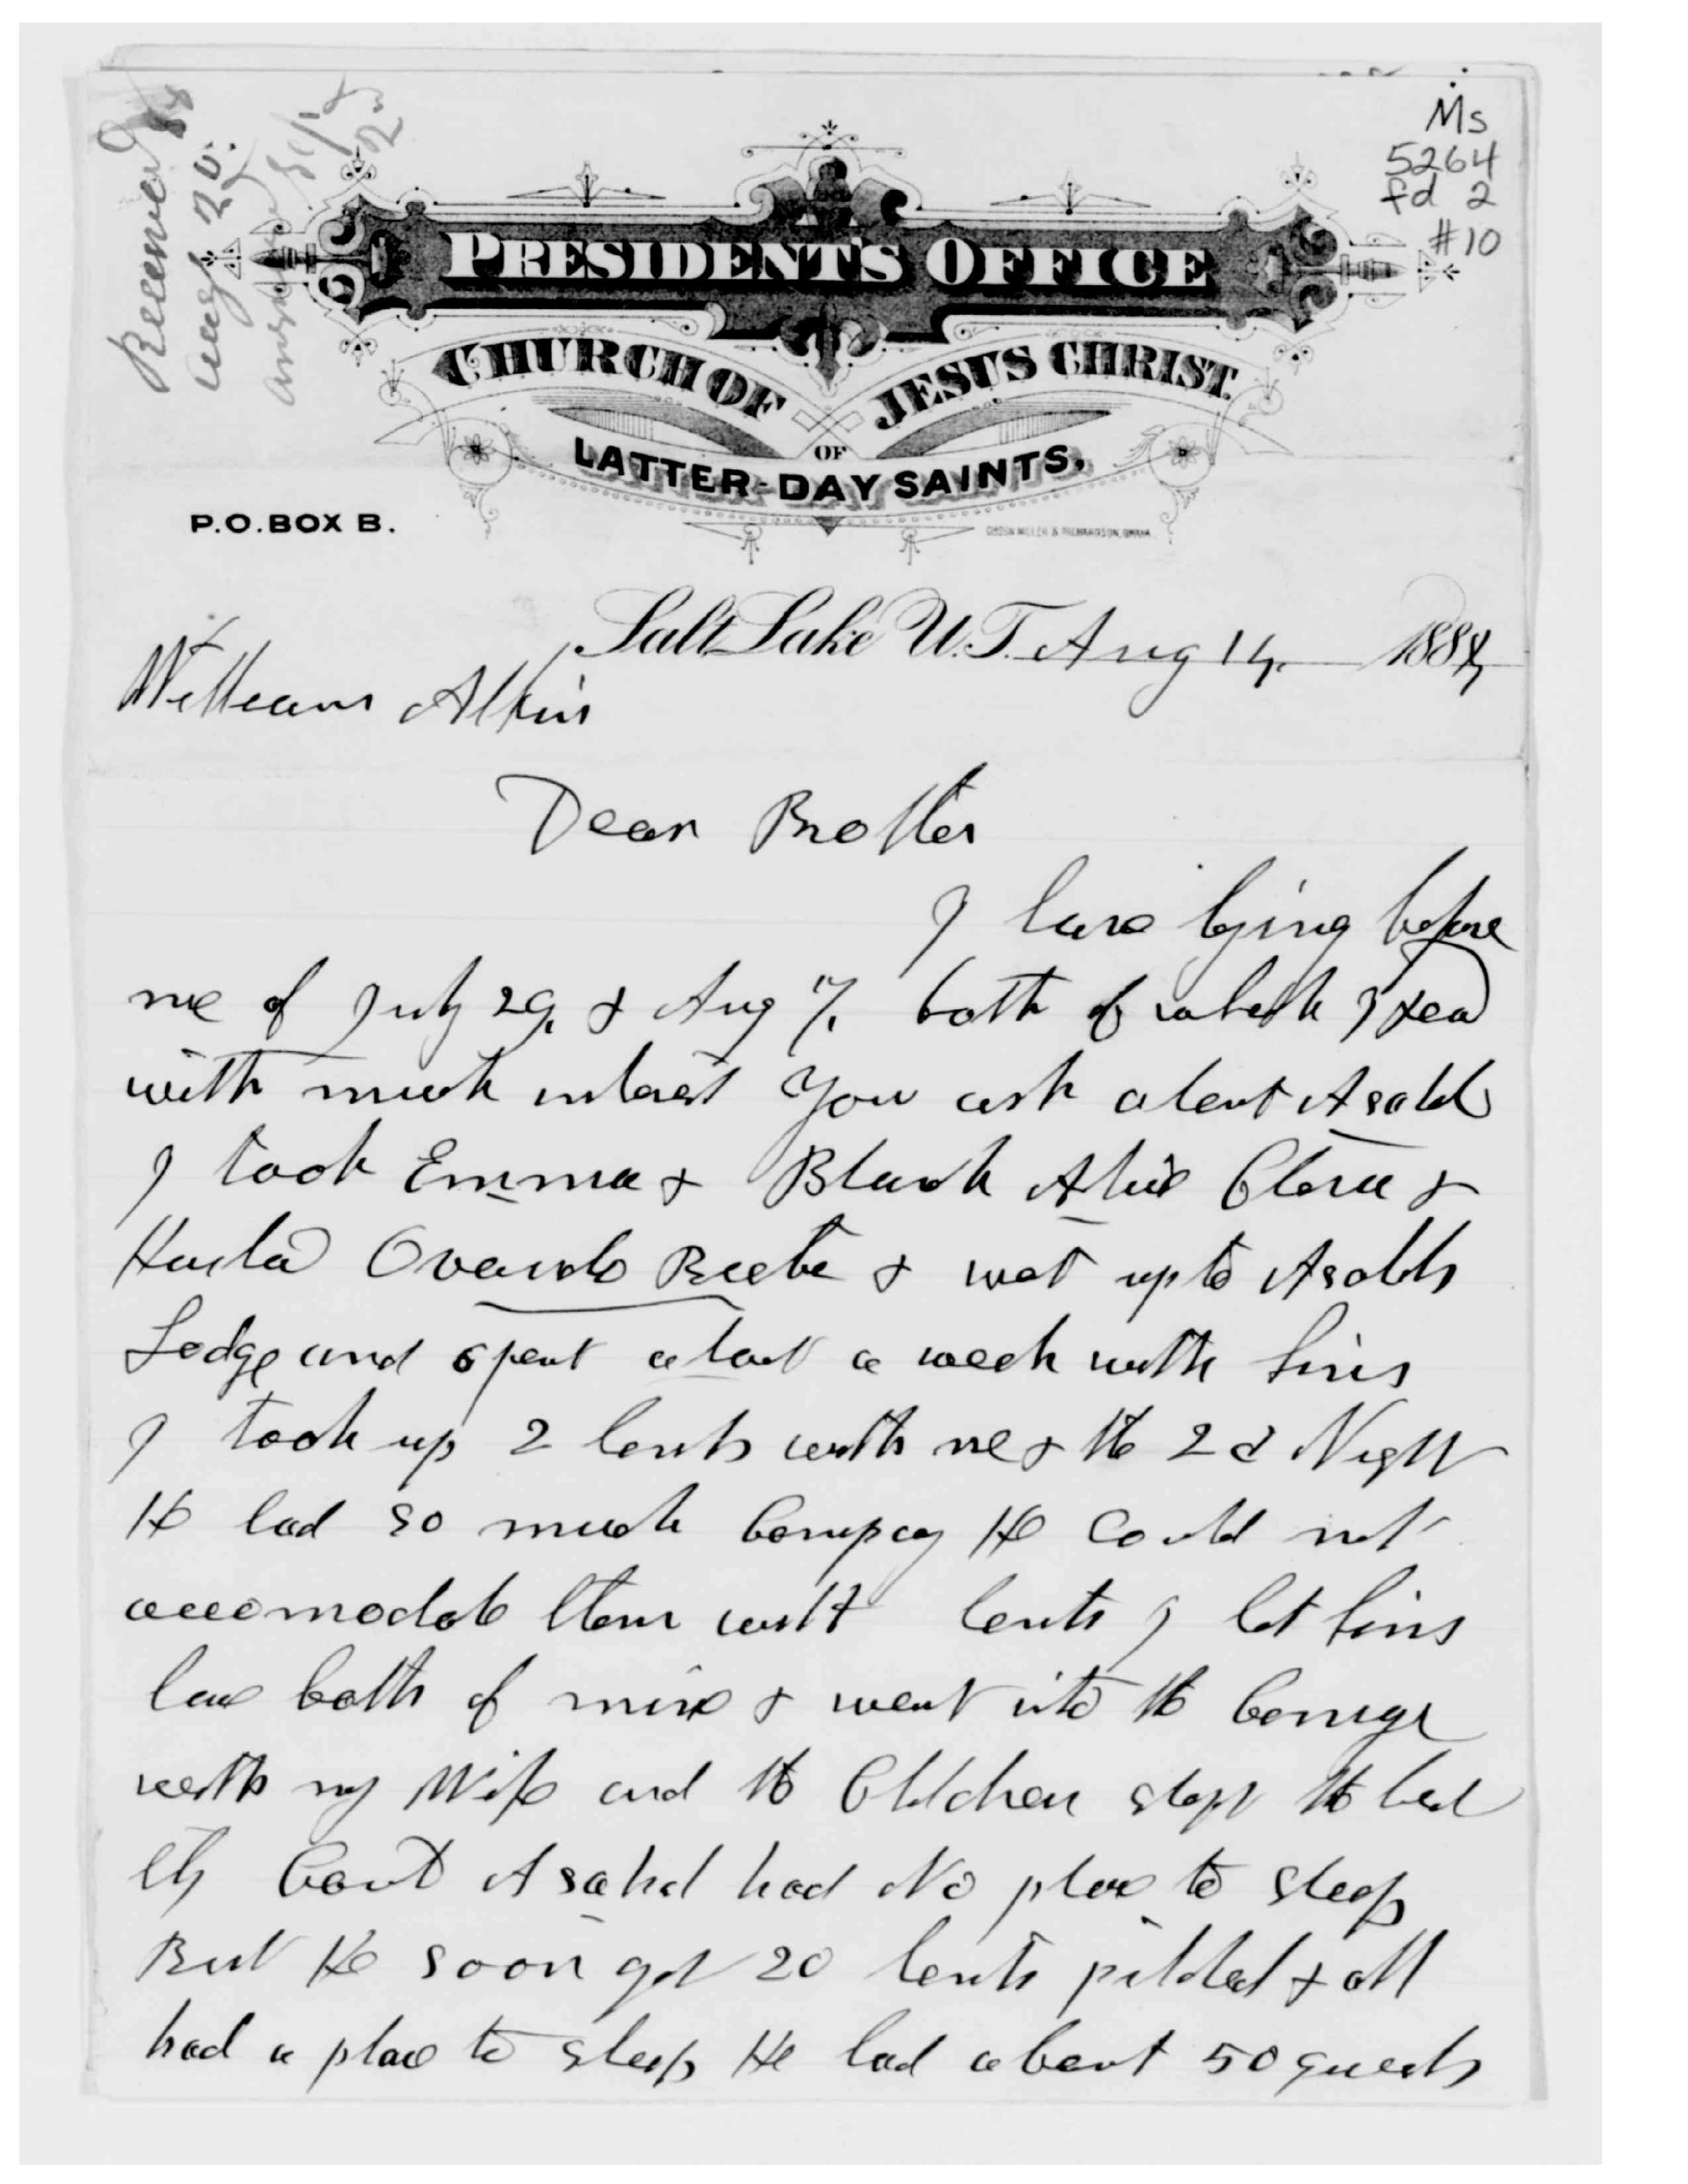 Received
Aug 20.
Ms
5264
fd 2
#10
PRESIDENT'S OFFICE
CHURCH OF JESUS CHRIST
OF
LATTER-DAY SAINTS.
P.O. BOX B.
Salt Lake U.T. Aug 14, 188
William Atkin
Dear Brother
I have lying before
me of July 29, & Aug 7, both of which I read
with much interest You ask about Asahel
I took Emma & Blanch Alice Clara &
Ovando Beebe & wet up to Asahels
Lodge and spent about a week with him
I took up 2 tents with me & the 2d Night
He had so much Compay He Could not
accomodate them with tents I let him
have both of mine & went into the Carriage
with my Wife and the Children slept the best
they Could Asahel had No place to sleep
But He soon got 20 tents pitched & all
had a place to sleep He had about 50 guests